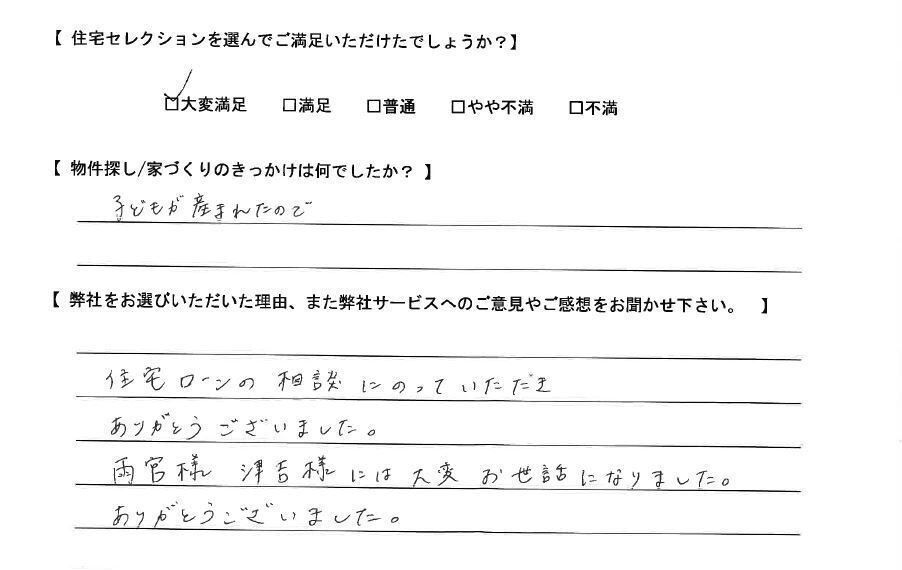 【 住宅セレクションを選んでご満足いただけたでしょうか？】
☑大変満足 □満足 □普通 □やや不満 □不満
【 物件探し/家づくりのきっかけは何でしたか？ 】
子どもが産まれたので
【 弊社をお選びいただいた理由、また弊社サービスへのご意見やご感想をお聞かせ下さい。 】
住宅ローンの相談にのっていただき
ありがとうございました。
雨宮様 津吉様には大変お世話になりました。
ありがとうございました。